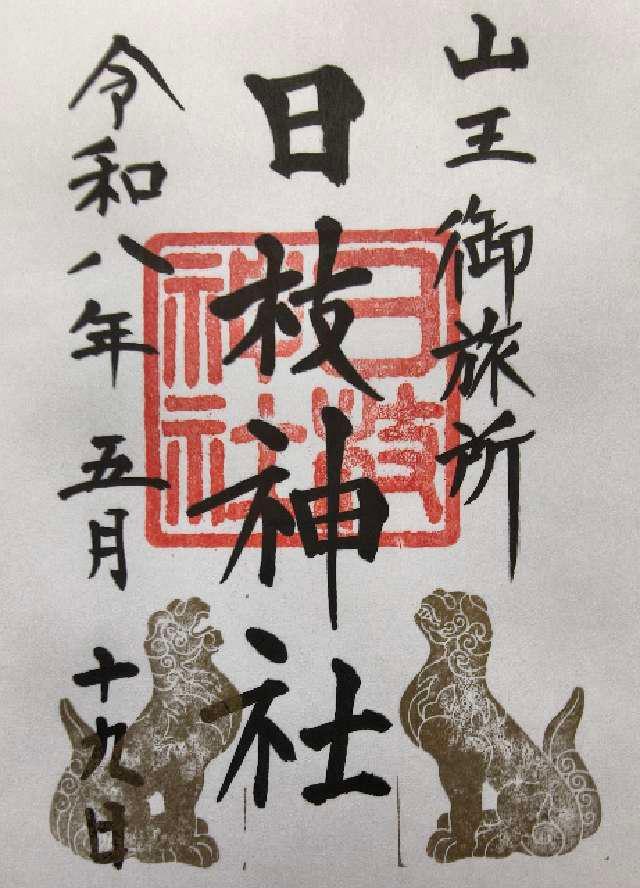 山王御旅所
日枝神社
令和八年五月十九日
日枝
神社